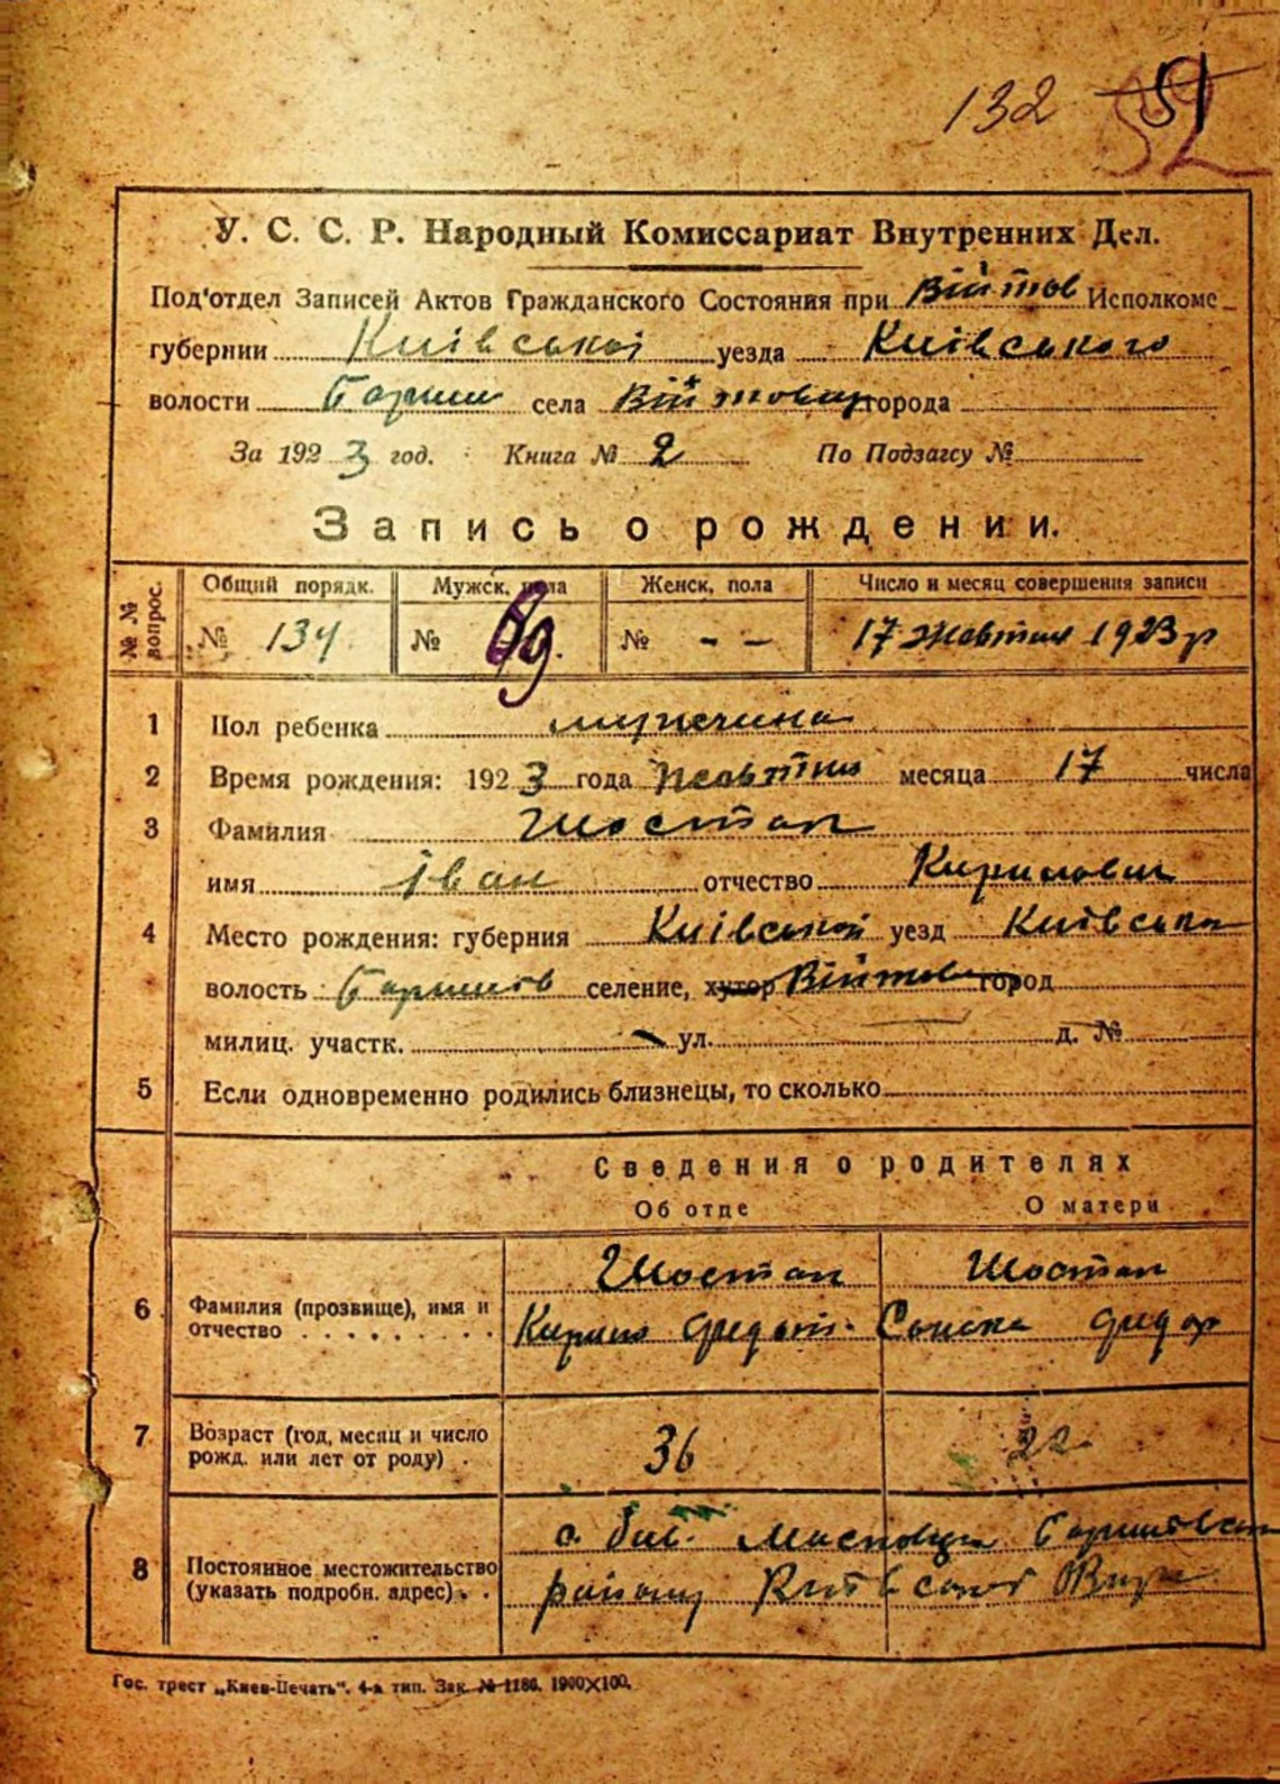 132 51 52
У. С. С. Р. Народный Комиссариат Внутренних Дел.
Под'отдел Записей Актов Гражданского Состояния при Війтов Исполкоме
губернии Київської уезда Київського
волости Бориш села города
За 1923 год. Книга № 2 По Подзагсу №
Запись о рождении.
№ № вопрос. Общий порядк. Мужск. пола Женск. пола Число и месяц совершения записи
№ 134 № 69. № - - 17 Жовтня 1923 р
1 Пол ребенка мужчина
2 Время рождения: 1923 года Жовтня месяца 17 числа
3 Фамилия Шостак
имя Іван отчество Кирилович
4 Место рождения: губерния Київської уезд
волость селение, хутор город
милиц. участк. ул. д. №
5 Если одновременно родились близнецы, то сколько
Сведения о родителях
Об отце О матери
Шостак Шостак
6 Фамилия (прозвище), имя и
отчество Кирило Федот.
7 Возраст (год, месяц и число
рожд. или лет от роду) 36 22
с.
8 Постоянное местожительство
(указать подробн. адрес) району
Гос. трест „Киев-Печать“. 4-я тип. Зак. № 1186. 1900×100.